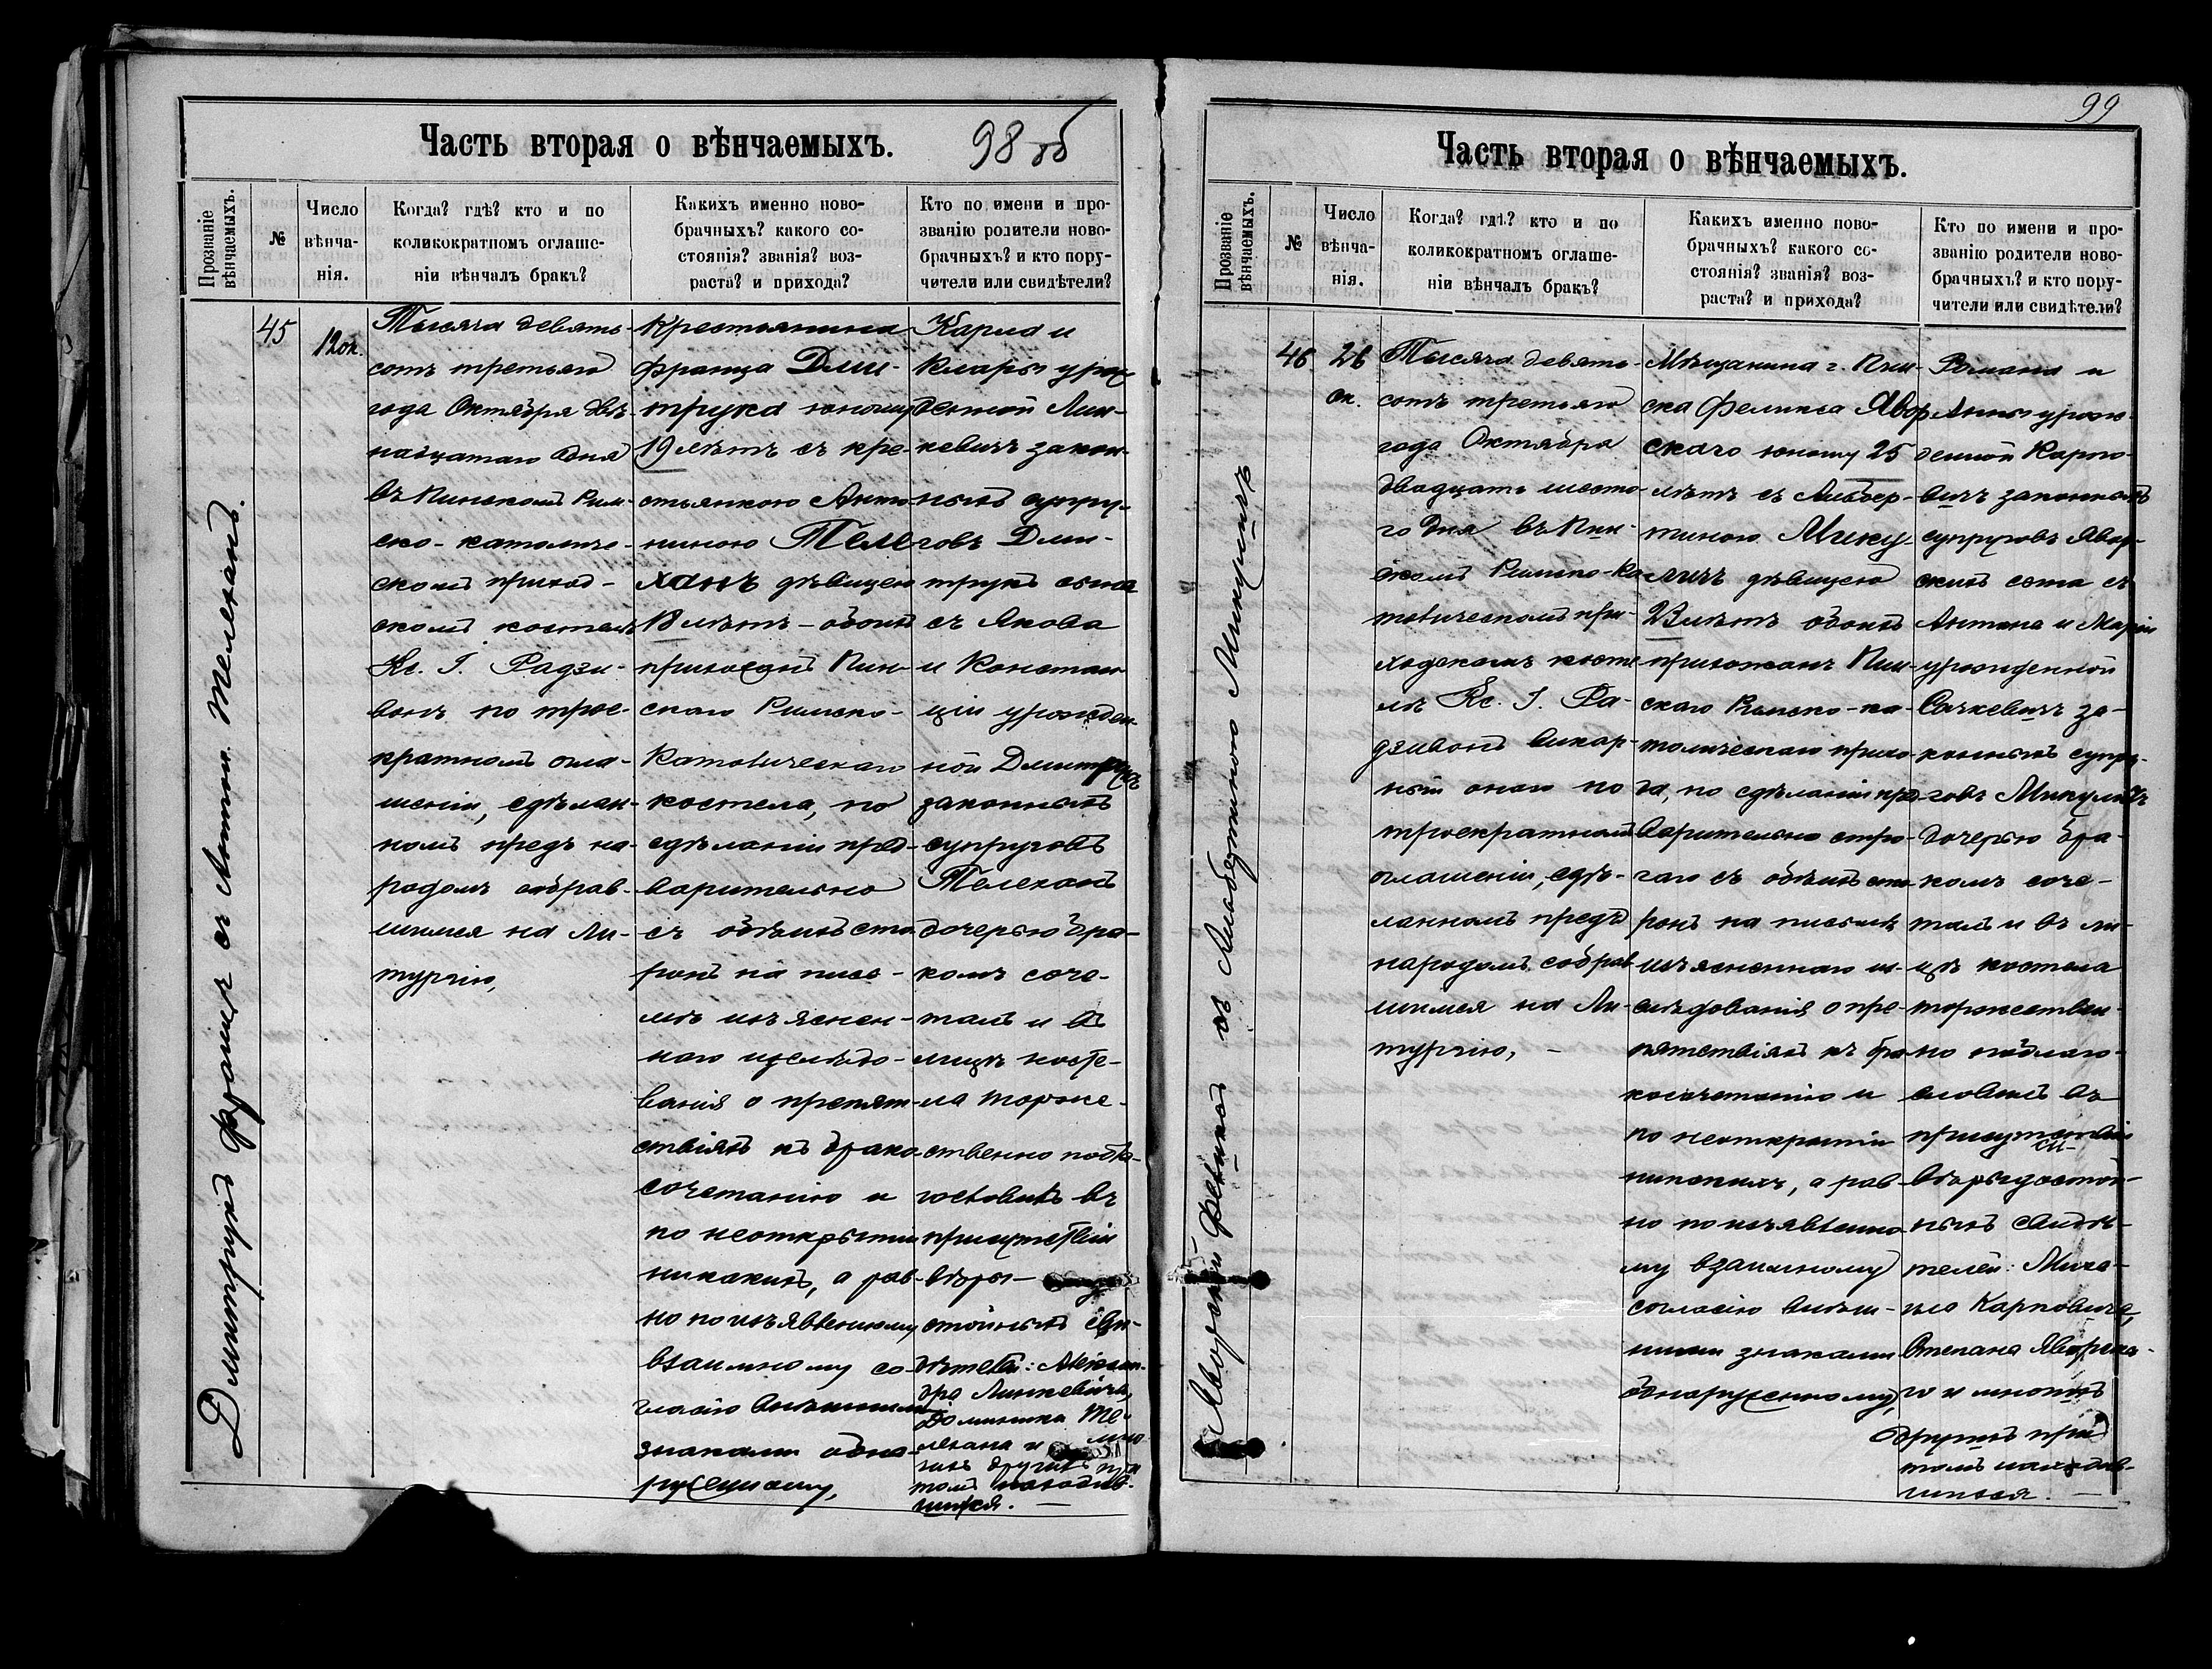 Часть вторая о вѣнчаемыхъ.
98 об
Прозваніе вѣнчаемыхъ.
№
Число вѣнча-
нія.
Когда? гдѣ? кто и по
коликократномъ оглаше-
ніи вѣнчалъ бракъ?
Какихъ именно ново-
брачныхъ? какого со-
стоянія? званія? воз-
раста? и прихода?
Кто по имени и про-
званію родители ново-
брачныхъ? и кто пору-
чители или свидѣтели?
Дмитрукъ Францъ съ Антон. Телеханъ.
45
12 ок.
Тысяча девять-
сотъ третьяго
года Октября двѣ-
надцатаго дня
въ Пинскомъ Рим-
ско-католиче-
скомъ приход-
скомъ костелѣ
Кс. І. Радзи-
вонъ по трое-
кратномъ огла-
шеніи, сдѣлан-
номъ предъ на-
родомъ собрав-
шимся на Ли-
тургію,
Крестьянина
Франца Дми-
трука юношу
19 лѣтъ съ кре-
стьянкою Анто-
ниною Телe-
ханъ дѣвицею
18 лѣтъ - обоихъ
прихожанъ Пин-
скаго Римско-
Католическаго
костела, по
сдѣланіи пред-
варительно
съ обѣихъ сто-
ронъ на пись-
мѣ изъяснен-
наго изслѣдо-
ванія о препят-
ствіяхъ къ брако-
сочетанію и
по неоткрытіи
никакихъ, а рав-
но по изъявленному
взаимному со-
гласію внѣшними
знаками обна-
руженному,
Карла и
Клары урож-
денной Лин-
кевичъ закон-
ныхъ супру-
говъ Дми-
трукъ сына
съ Якова
и Констан-
ціи урожден-
ной Дмитрукъ
законныхъ
супруговъ
Телеханъ
дочерью бра-
комъ соче-
талъ и въ
лицѣ косте-
ла торже-
ственно побла-
гословилъ въ
присутствіи
вѣры-
стойныхъ сви-
дѣтелей: Алексан-
дра Линкевича,
Доминика Те-
лехана и мно-
гихъ другихъ при
томъ находив-
шихся. —
99
Часть вторая о вѣнчаемыхъ.
Прозваніе вѣнчаемыхъ.
№
Число вѣнча-
нія.
Когда? гдѣ? кто и по
коликократномъ оглаше-
ніи вѣнчалъ бракъ?
Какихъ именно ново-
брачныхъ? какого со-
стоянія? званія? воз-
раста? и прихода?
Кто по имени и про-
званію родители ново-
брачныхъ? и кто пору-
чители или свидѣтели?
Яворскій Феликсъ съ Альбертиною Микуличъ
46
26
ок.
Тысяча девять-
сотъ третьяго
года Октября
двадцать шесто-
го дня въ Пин-
скомъ Римско-Ка-
толическомъ при-
ходскомъ косте-
лѣ Кс. І. Ра-
дзивонъ викар-
ный онаго по
троекратномъ
оглашеніи, сдѣ-
ланномъ предъ
народомъ собрав-
шимся на Ли-
тургію, -
Мѣщанина г. Пин-
ска Феликса Явор-
скаго юношу 25
лѣтъ съ Альбер-
тиною Мику-
личъ дѣвицею
23 лѣтъ обоихъ
прихожанъ Пин-
скаго Римско-ка-
толическаго прихо-
да, по сдѣланіи пред-
варительно стро-
гаго съ обѣихъ сто-
ронъ на письмѣ
изъясненнаго из-
слѣдованія о пре-
пятствіяхъ къ бра-
косочетанію и
по неоткрытіи
никакихъ, а рав-
но по изъявленно-
му взаимному
согласію внѣш-
ними знаками
обнаруженному,
Романа и
Анны урож-
денной Карпо-
вичъ законныхъ
супруговъ Явор-
скихъ сына съ
Антона и Маріи
урожденной
Сачкевичъ за-
конныхъ супру-
говъ Микуличъ
дочерью бра-
комъ соче-
талъ и въ ли-
цѣ костела
торжествен-
но поблаго-
словилъ въ
присутствіи
вѣрыдостой-
ныхъ свидѣ-
телей: Миха-
ила Карповича,
Степана Яворска-
го и многихъ
другихъ при
томъ находив-
шихся. —